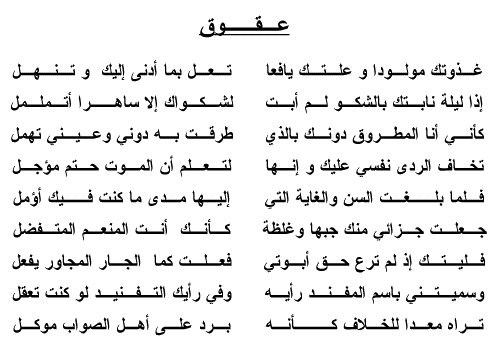 عقوق
غذوتك مولودا و علتك يافعا تعل بما أدنى إليك و تنهل
إذا ليلة نابتك بالشكو لم أبت لشكواك إلا ساهرا أتململ
كأني أنا المطروق دونك بالذي طرقت به دوني وعيني تهمل
تخاف الردى نفسي عليك و إنها لتعلم أن الموت حتم مؤجل
فلما بلغت السن والغاية التي إليها مدى ما كنت فيك أؤمل
جعلت جزائي منك جبها وغلظة كأنك أنت المنعم المتفضل
فليتك إذ لم ترع حق أبوتي فعلت كما الجار المجاور يفعل
وسميتني باسم المفند رأيه وفي رأيك التفنيد لو كنت تعقل
تراه معدا للخلاف كأنه برد على أهل الصواب موكل